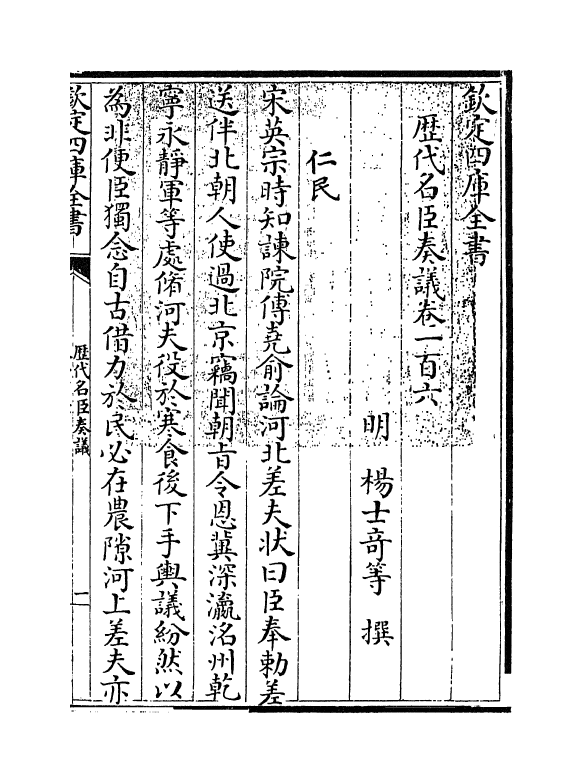 欽定四庫全書
歴代名臣奏議卷一百六
明 楊士竒等 撰
仁民
宋英宗時知諫院傅堯俞論河北差夫狀曰臣奉勅差
送伴北朝人使過北京竊聞朝旨令恩冀深瀛洺州乾
寧永靜軍等處脩河夫役於寒食後下手輿議紛然以
為非便臣獨念自古借力於民必在農隙河上差夫亦
欽定四庫全書
歴代名臣奏議